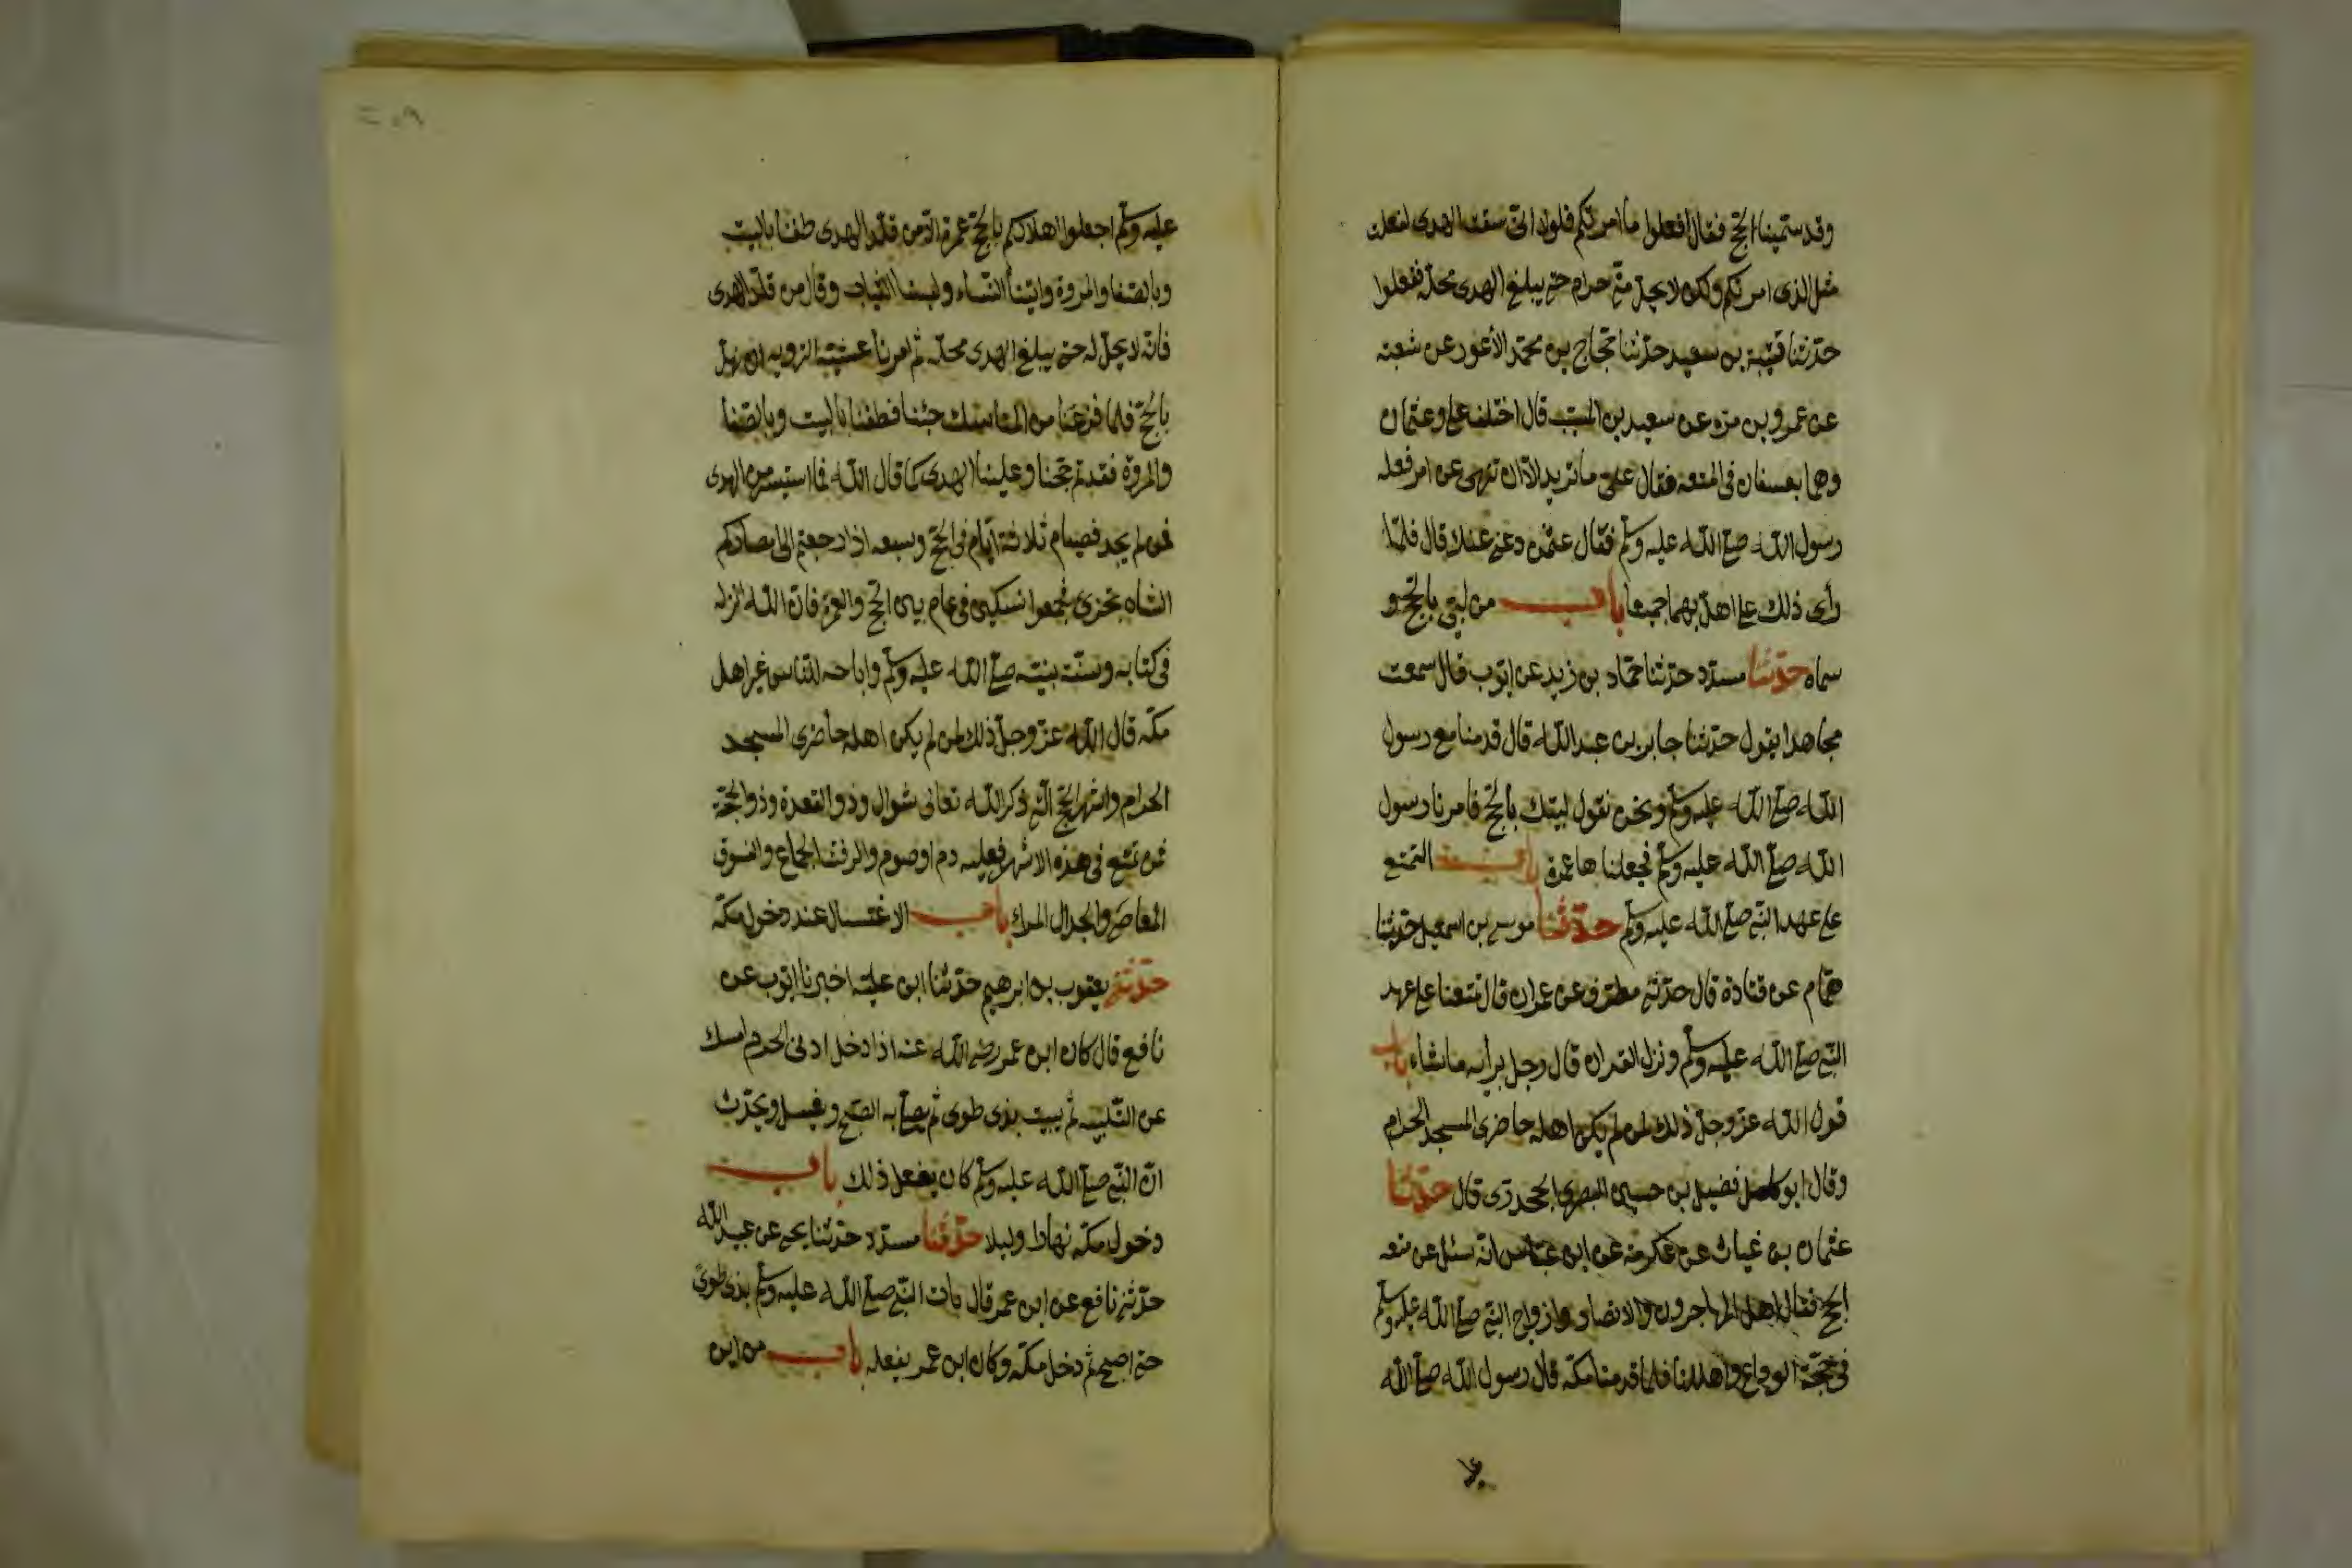 وقد سمّينا الحجّ فقال افعلوا ما امرتكم فلولا انّى سقت الهدى لفعلت
مثل الذى امرتكم ولكن لا يحلّ منّى حرام حتى يبلغ الهدى محلّه ففعلوا
حدّثنا قتيبة بن سعيد حدّثنا حجّاج بن محمّد الأعور عن شعبه
عن عمرو بن مره عن سعيد بن المسيّب قال اختلف على وعثمان
وهما بعسفان فى المتعه فقال علىّ ما تريد الا ان تنهى عن امر فعله
رسول الله صلى الله عليه وسلّم فقال عثمن دعنى عنك قال فلمّا
رأى ذلك على اهلّ بهما جميعا باب من لبّى بالحجّ و
سماه حدّثنا مسدّد حدّثنا حمّاد بن زيد عن ايّوب قال سمعت
مجاهدا يقول حدّثنا جابر بن عبد الله قال قدمنا مع رسول
الله صلى الله عليه وسلّم ونحن نقول لبيّك بالحجّ فامرنا رسول
الله صلى الله عليه وسلّم فجعلناها عمرة باب التمتع
على عهد النبّى صلى الله عليه وسلّم حدّثنا موسى بن اسمعيل حدّثنا
همّام عن قتادة قال حدّثنى مطرّف عن عمران قال تمتعنا على عهد
النبّى صلى الله عليه وسلّم ونزل القران قال رجل برأيه ما شاء باب
قول الله عزّ وجلّ ذلك لمن لم يكن اهله حاضرى المسجد الحرام
وقال ابو كامل فضيل بن حسين البصرى الجحدرى قال حدّثنا
عثمان بن غياث عن عكرمه عن ابن عبّاس انّه سئل عن متعه
الحجّ فقال اهلّ المهاجرون والانصار وازواج النبّى صلى الله عليه وسلّم
فى حجّة الوداع واهللنا فلما قدمنا مكّه قال رسول الله صلى الله
عليه
عليه وسلّم اجعلوا اهلالكم بالحجّ عمرة الّا من قلّد الهدى طفنا بالبيت
وبالصّفا والمروة واتينا النّساء ولبسنا الثياب وقال من قلّد الهدى
فانّه لا يحلّ له حتى يبلغ الهدى محلّه ثمّ امرنا عشيّة التروية ان نهلّ
بالحجّ فلما فرغنا من المناسك جئنا فطفنا بالبيت وبالصّفا
والمروة فقد تمّ حجّنا وعلينا الهدى كما قال الله فما استيسر من الهدى
فمن لم يجد فصيام ثلاثة ايّام فى الحجّ وسبعه اذا رجعتم الى امصاركم
الشاه تجزى فجمعوا نسكين فى عام بين الحجّ والعمرة فانّ الله انزله
فى كتابه وسنّه نبيّه صلى الله عليه وسلّم واباحه للنّاس غير اهل
مكّه قال الله عزّ وجلّ ذلك لمن لم يكن اهله حاضرى المسجد
الحرام واشهر الحجّ التى ذكر الله تعالى شوال وذو القعدة وذو الحجّة
فمن تمتّع فى هذه الاشهر فعليه دم او صوم والرفث الجماع والفسوق
المعاصى والجدال المراء باب الاغتسال عند دخول مكّه
حدّثنى يعقوب بن ابرهيم حدّثنا ابن عليّه اخبرنا ايّوب عن
نافع قال كان ابن عمر رضى الله عنه اذا دخل ادنى الحرم امسك
عن التّلبيه ثمّ يبيت بذى طوى ثمّ يصلّى به الصّبح ويغتسل ويحدّث
انّ النبّى صلى الله عليه وسلّم كان يفعل ذلك باب
دخول مكّه نهارا وليلا حدّثنا مسدّد حدّثنا يحيى عن عبيد الله
حدّثنى نافع عن ابن عمر قال بات النبّى صلى الله عليه وسلّم بذى طوى
حتى اصبح ثم دخل مكّه وكان ابن عمر يفعله باب من اين